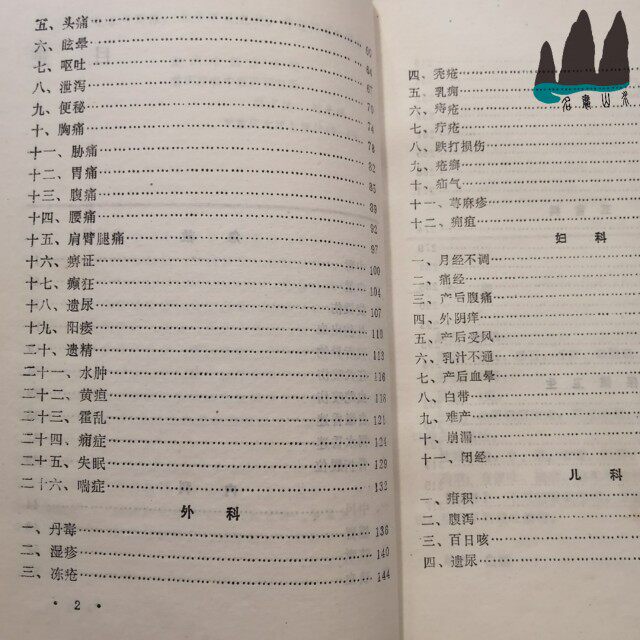 五、头痛
六、眩晕……64
七、呕吐……67
八、泄泻……70
九、便秘……74
十、胸痛……78
十一、胁痛……82
十二、胃痛……85
十三、腹痛……89
十四、腰痛……92
十五、肩臂腿痛……97
十六、痹证……100
十七、癫狂……104
十八、遗尿……107
十九、阳痿……110
二十、遗精……113
二十一、水肿……116
二十二、黄疸……118
二十三、霍乱……121
二十四、痫症……124
二十五、失眠……129
二十六、喘症……132
外科
一、丹毒……136
二、湿疹……140
三、冻疮……144
· 2 ·
四、秃疮……
五、乳痈……
六、痔疮……
七、疔疮……
八、跌打损伤……
九、疮癣……
十、疝气……
十一、荨麻疹……
十二、痈疽……
妇科
一、月经不调……
二、痛经……
三、产后腹痛……
四、外阴痒……
五、产后受风……
六、乳汁不通……
七、产后血晕……
八、白带……
九、难产……
十、崩漏……
十一、闭经……
儿科
一、疳积……
二、腹泻……
三、百日咳……
四、遗尿……